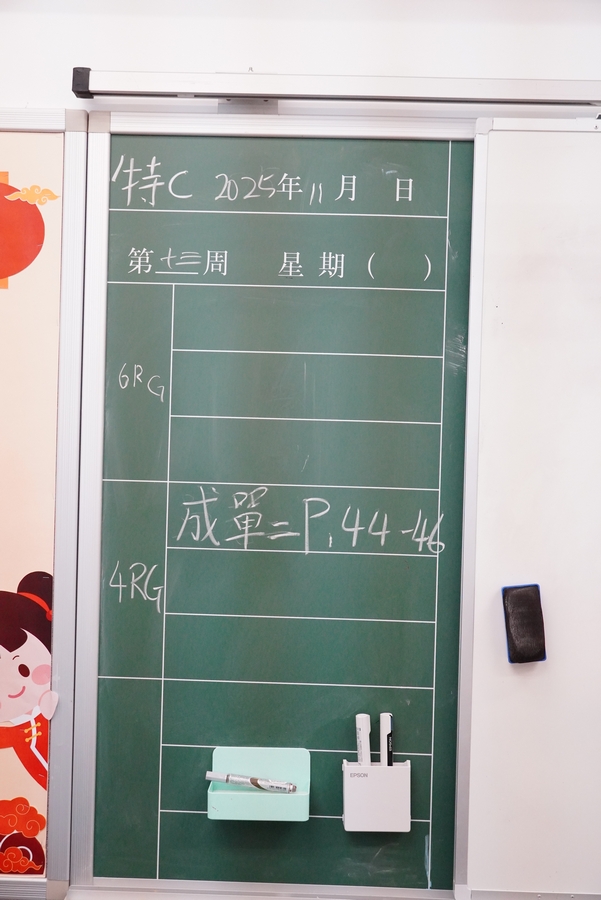 特C 2025年11月 日
第十三周 星期( )
6RG
成單二P.44-46
4RG
EPSON